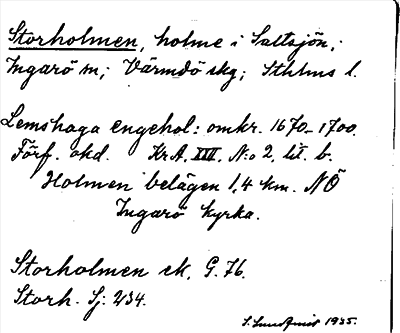 Storholmen, holme i Saltsjön;
Ingarö sn; Värmdö skg; Sthlms l.
Lemshaga engehol: omkr. 1670–1700.
Förf. okd. KrA, XIII, N:o 2, lit. b.
Holmen belägen 1,4 km. NÖ
Ingarö kyrka.
Storholmen ek. G. 76.
Storh. Sj: 234.
S. Lundqvist 1935.